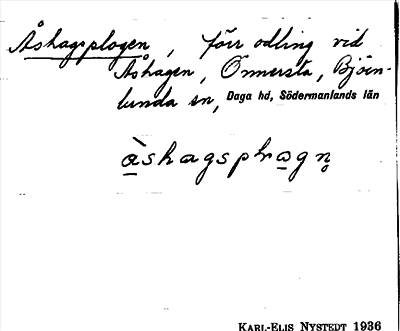 Åshagsplogen, förr odling vid
Åshagen, Önnersta, Björn-
lunda sn, Daga hd, Södermanlands län
ȧ̱shagsphra̱gn̥
KARL-ELIS NYSTEDT 1936